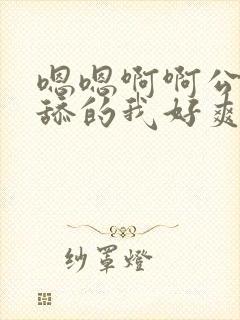 嗯嗯啊啊公
舔的我好爽
纱罩燈